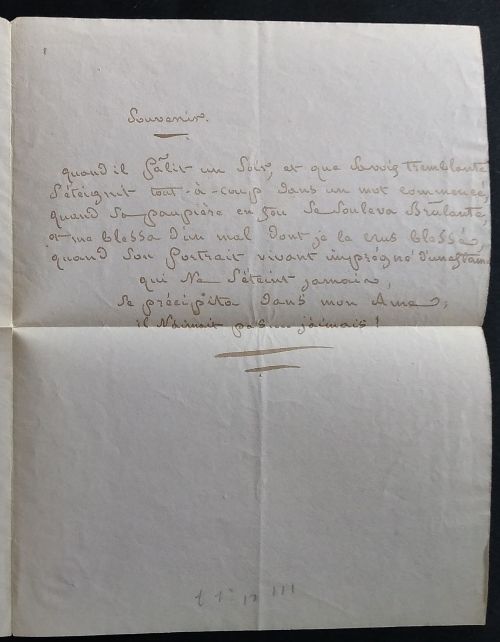 Souvenir.
quand il Pâlit un Soir, et que Savoix tremblante
S'éteignit tout-à-coup dans un mot commencé,
quand Sa paupière en feu Se Souleva Brûlante,
et me blessa d'un mal dont je le crus blessé,
quand Son Portrait vivant imprégné d'une flamme
qui Ne S'éteint jamais,
Se précipita dans mon Ame,
il N'aimait pas... j'aimais!